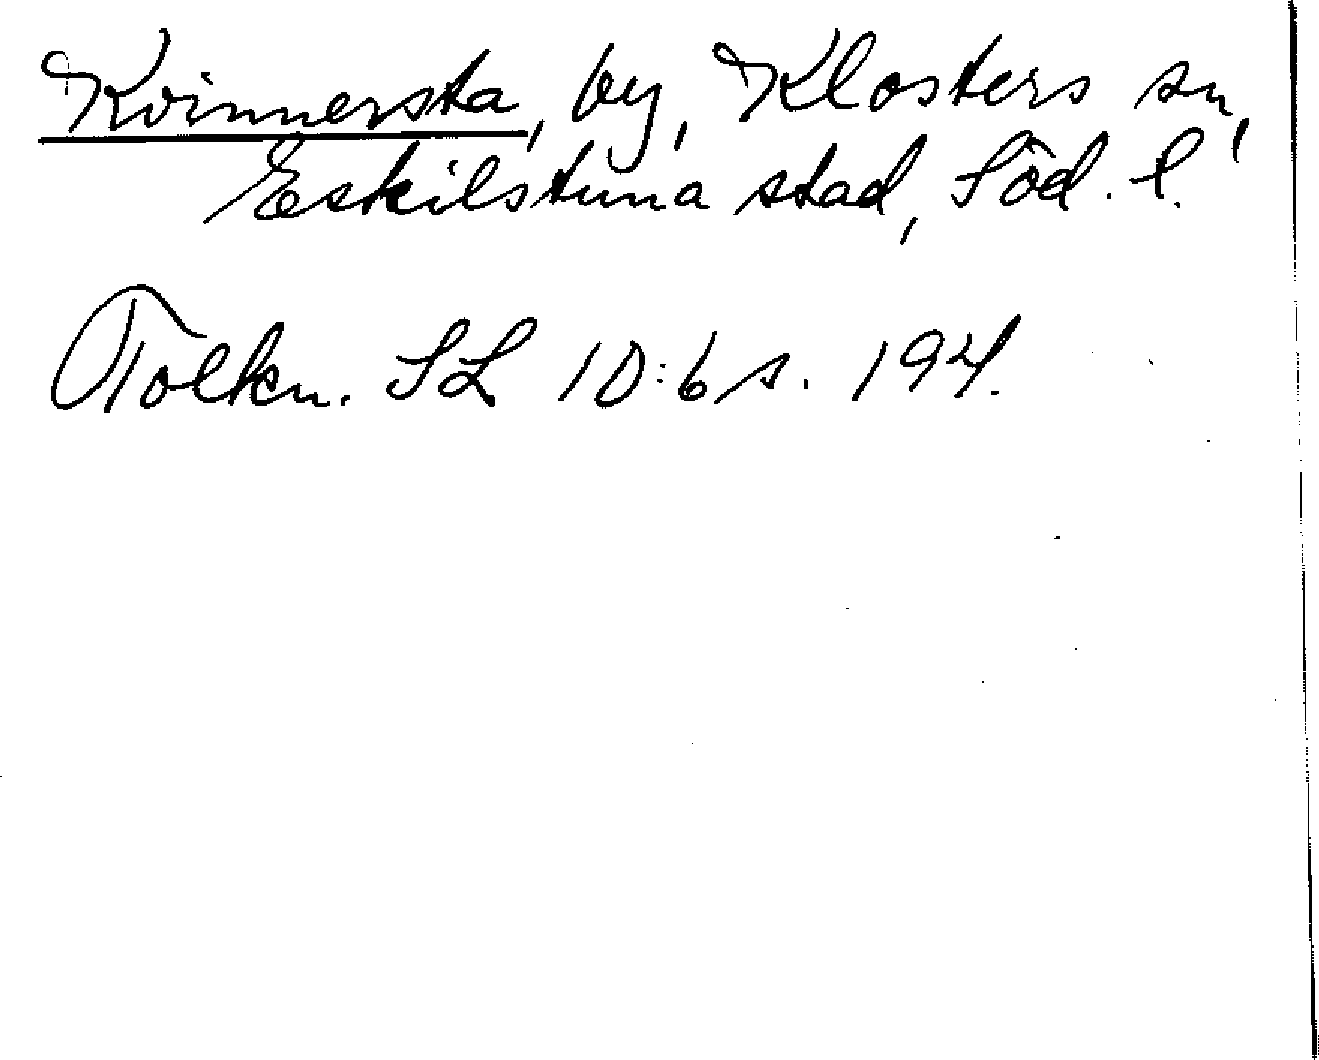 Kvinnersta, by, Klosters sn,
Eskilstuna stad, Söd. l.
Tolkn. SL 10:6 s. 194.